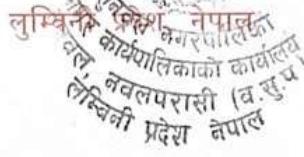 लुम्बिनी प्रदेश, नेपाल
नगरपालिका
कार्यपालिकाको कार्यालय
वल, नवलपरासी (व.सु.प
लुम्बिनी प्रदेश नेपाल